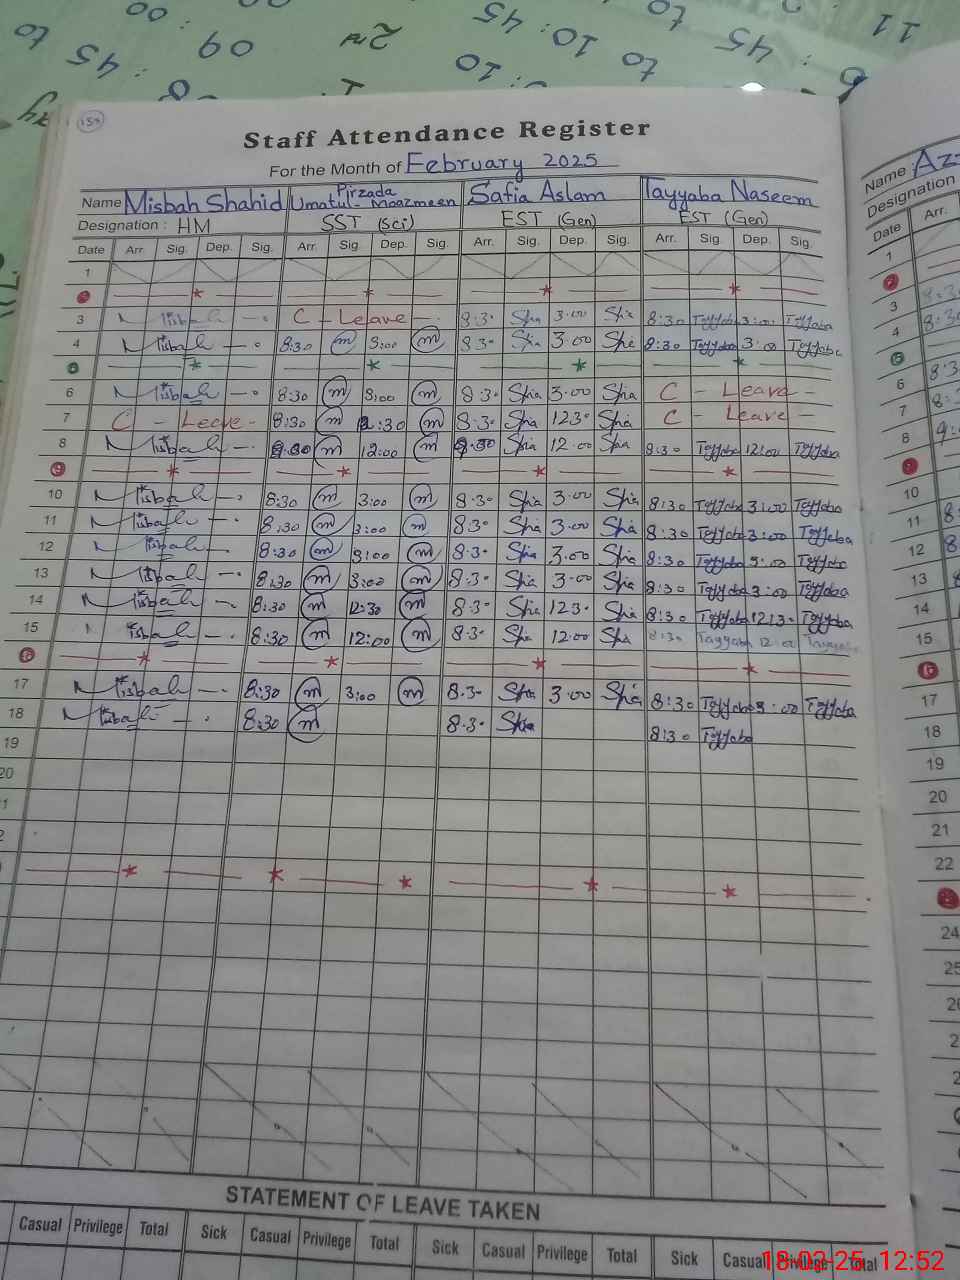 11
45 to 10:45 to 45
09 00
2nd
45 to 10:
to
08
159
Staff Attendance Register
For the Month of February 2025
Name Misbah Shahid Pirzada Umatul Moazmeen Safia Aslam Tayyaba Naseem
Designation : HM SST (Sci) EST (Gen) EST (Gen)
Date Arr. Sig. Dep. Sig. Arr. Sig. Dep. Sig. Arr. Sig. Dep. Sig. Arr. Sig. Dep. Sig.
1
3 Misbah C - Leave - 8:30 3:00 8:30 Tayyaba 3:00 Tayyaba
4 Misbah 8:30 m 3:00 m 8:30 3:00 8:30 Tayyaba 3:00 Tayyaba
6 Misbah 8:30 m 3:00 m 8:30 3:00 C - Leave -
7 C - Leave - 8:30 m 12:30 m 8:30 1230 C - Leave -
8 Misbah m 12:00 m 12:00 8:30 Tayyaba 12:00 Tayyaba
10 Misbah 8:30 m 3:00 m 8:30 3:00 8:30 Tayyaba 3:00 Tayyaba
11 Misbah 8:30 m 3:00 m 8:30 3:00 8:30 Tayyaba 3:00 Tayyaba
12 Misbah 8:30 m 3:00 m 8:30 3:00 8:30 Tayyaba 3:00 Tayyaba
13 Misbah 8:30 m 3:00 m 8:30 3:00 8:30 Tayyaba 3:00 Tayyaba
14 Misbah 8:30 m 12:30 m 8:30 1230 8:30 Tayyaba 12:30 Tayyaba
15 Misbah 8:30 m 12:00 m 8:30 12:00 8:30 Tayyaba 12:00 Tayyaba
17 Misbah 8:30 m 3:00 m 8:30 3:00 8:30 Tayyaba 3:00 Tayyaba
18 Misbah 8:30 m 8:30 8:30 Tayyaba
19
20
STATEMENT OF LEAVE TAKEN
Casual Privilege Total Sick Casual Privilege Total Sick Casual Privilege Total Sick Casual Privilege Total
Name Az
Designation
Date Arr.
1
3 8:30
4 8:30
6 8:3
7 8:
8 9:
10
11 8:
12 8
13
14
15
17
18
19
20
21
22
24
25
18-02-25 12:52